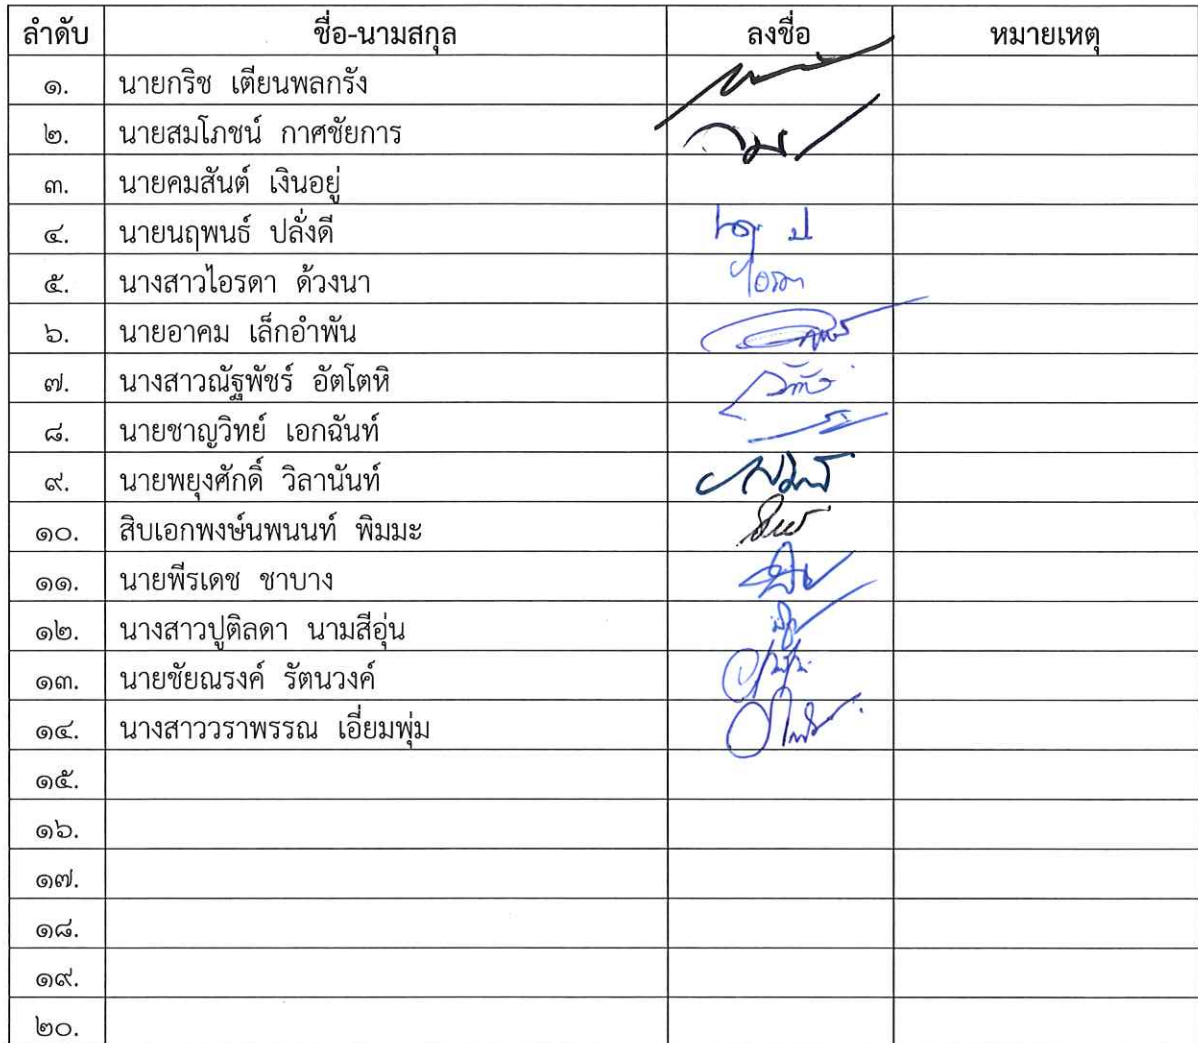 ลำดับ ชื่อ-นามสกุล ลงชื่อ หมายเหตุ
๑. นายกริช เตียนพลกรัง
๒. นายสมโภชน์ กาศชัยการ
๓. นายคมสันต์ เงินอยู่
๔. นายนฤพนธ์ ปลั่งดี
๕. นางสาวไอรดา ด้วงนา ไอรดา
๖. นายอาคม เล็กอำพัน
๗. นางสาวณัฐพัชร์ อัตโตหิ
๘. นายชาญวิทย์ เอกฉันท์
๙. นายพยุงศักดิ์ วิลานันท์
๑๐. สิบเอกพงษ์นพนนท์ พิมมะ
๑๑. นายพีรเดช ชาบาง
๑๒. นางสาวปูติลดา นามสีอุ่น
๑๓. นายชัยณรงค์ รัตนวงค์
๑๔. นางสาววราพรรณ เอี่ยมพุ่ม
๑๕.
๑๖.
๑๗.
๑๘.
๑๙.
๒๐.